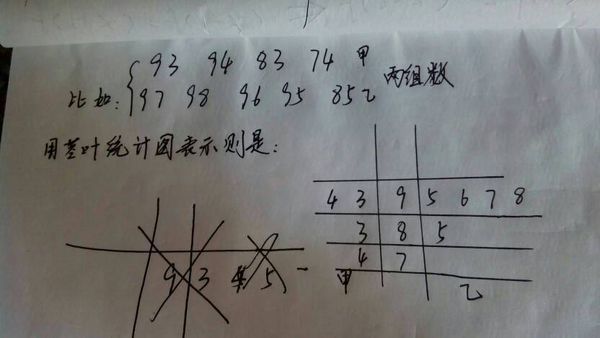 93 94 83 74 甲
比如: 97 98 96 95 85乙 两组数
用茎叶统计图表示则是:
4 3 9 5 6 7 8
3 8 5
4 7
甲 乙